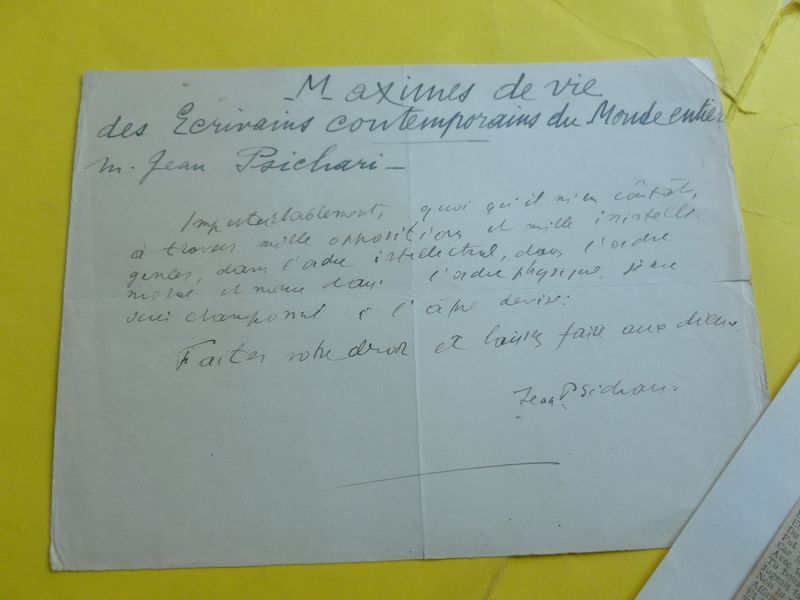 Maximes de vie
des Ecrivains contemporains du Monde entier
M. Jean Psichari
Imperturbablement, quoi qu'il m'en coûtât,
à travers mille oppositions et mille inintelli-
gences, dans l'ordre intellectuel, dans l'ordre
moral et même dans l'ordre physique, je me
suis cramponné à l'âpre devise:
Faites votre devoir et laissez faire aux dieux.
Jean Psichari